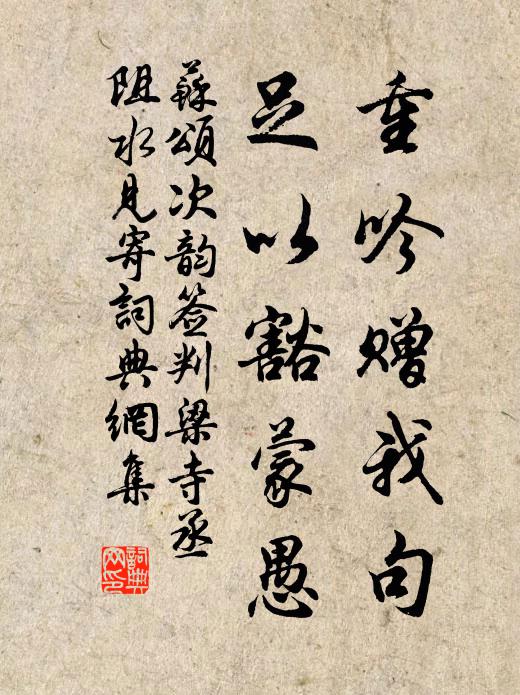 重吟赠我句
足以豁蒙愚
蘇頌次韵签判梁寺丞
阻水見寄詞典網集
詞典
网印